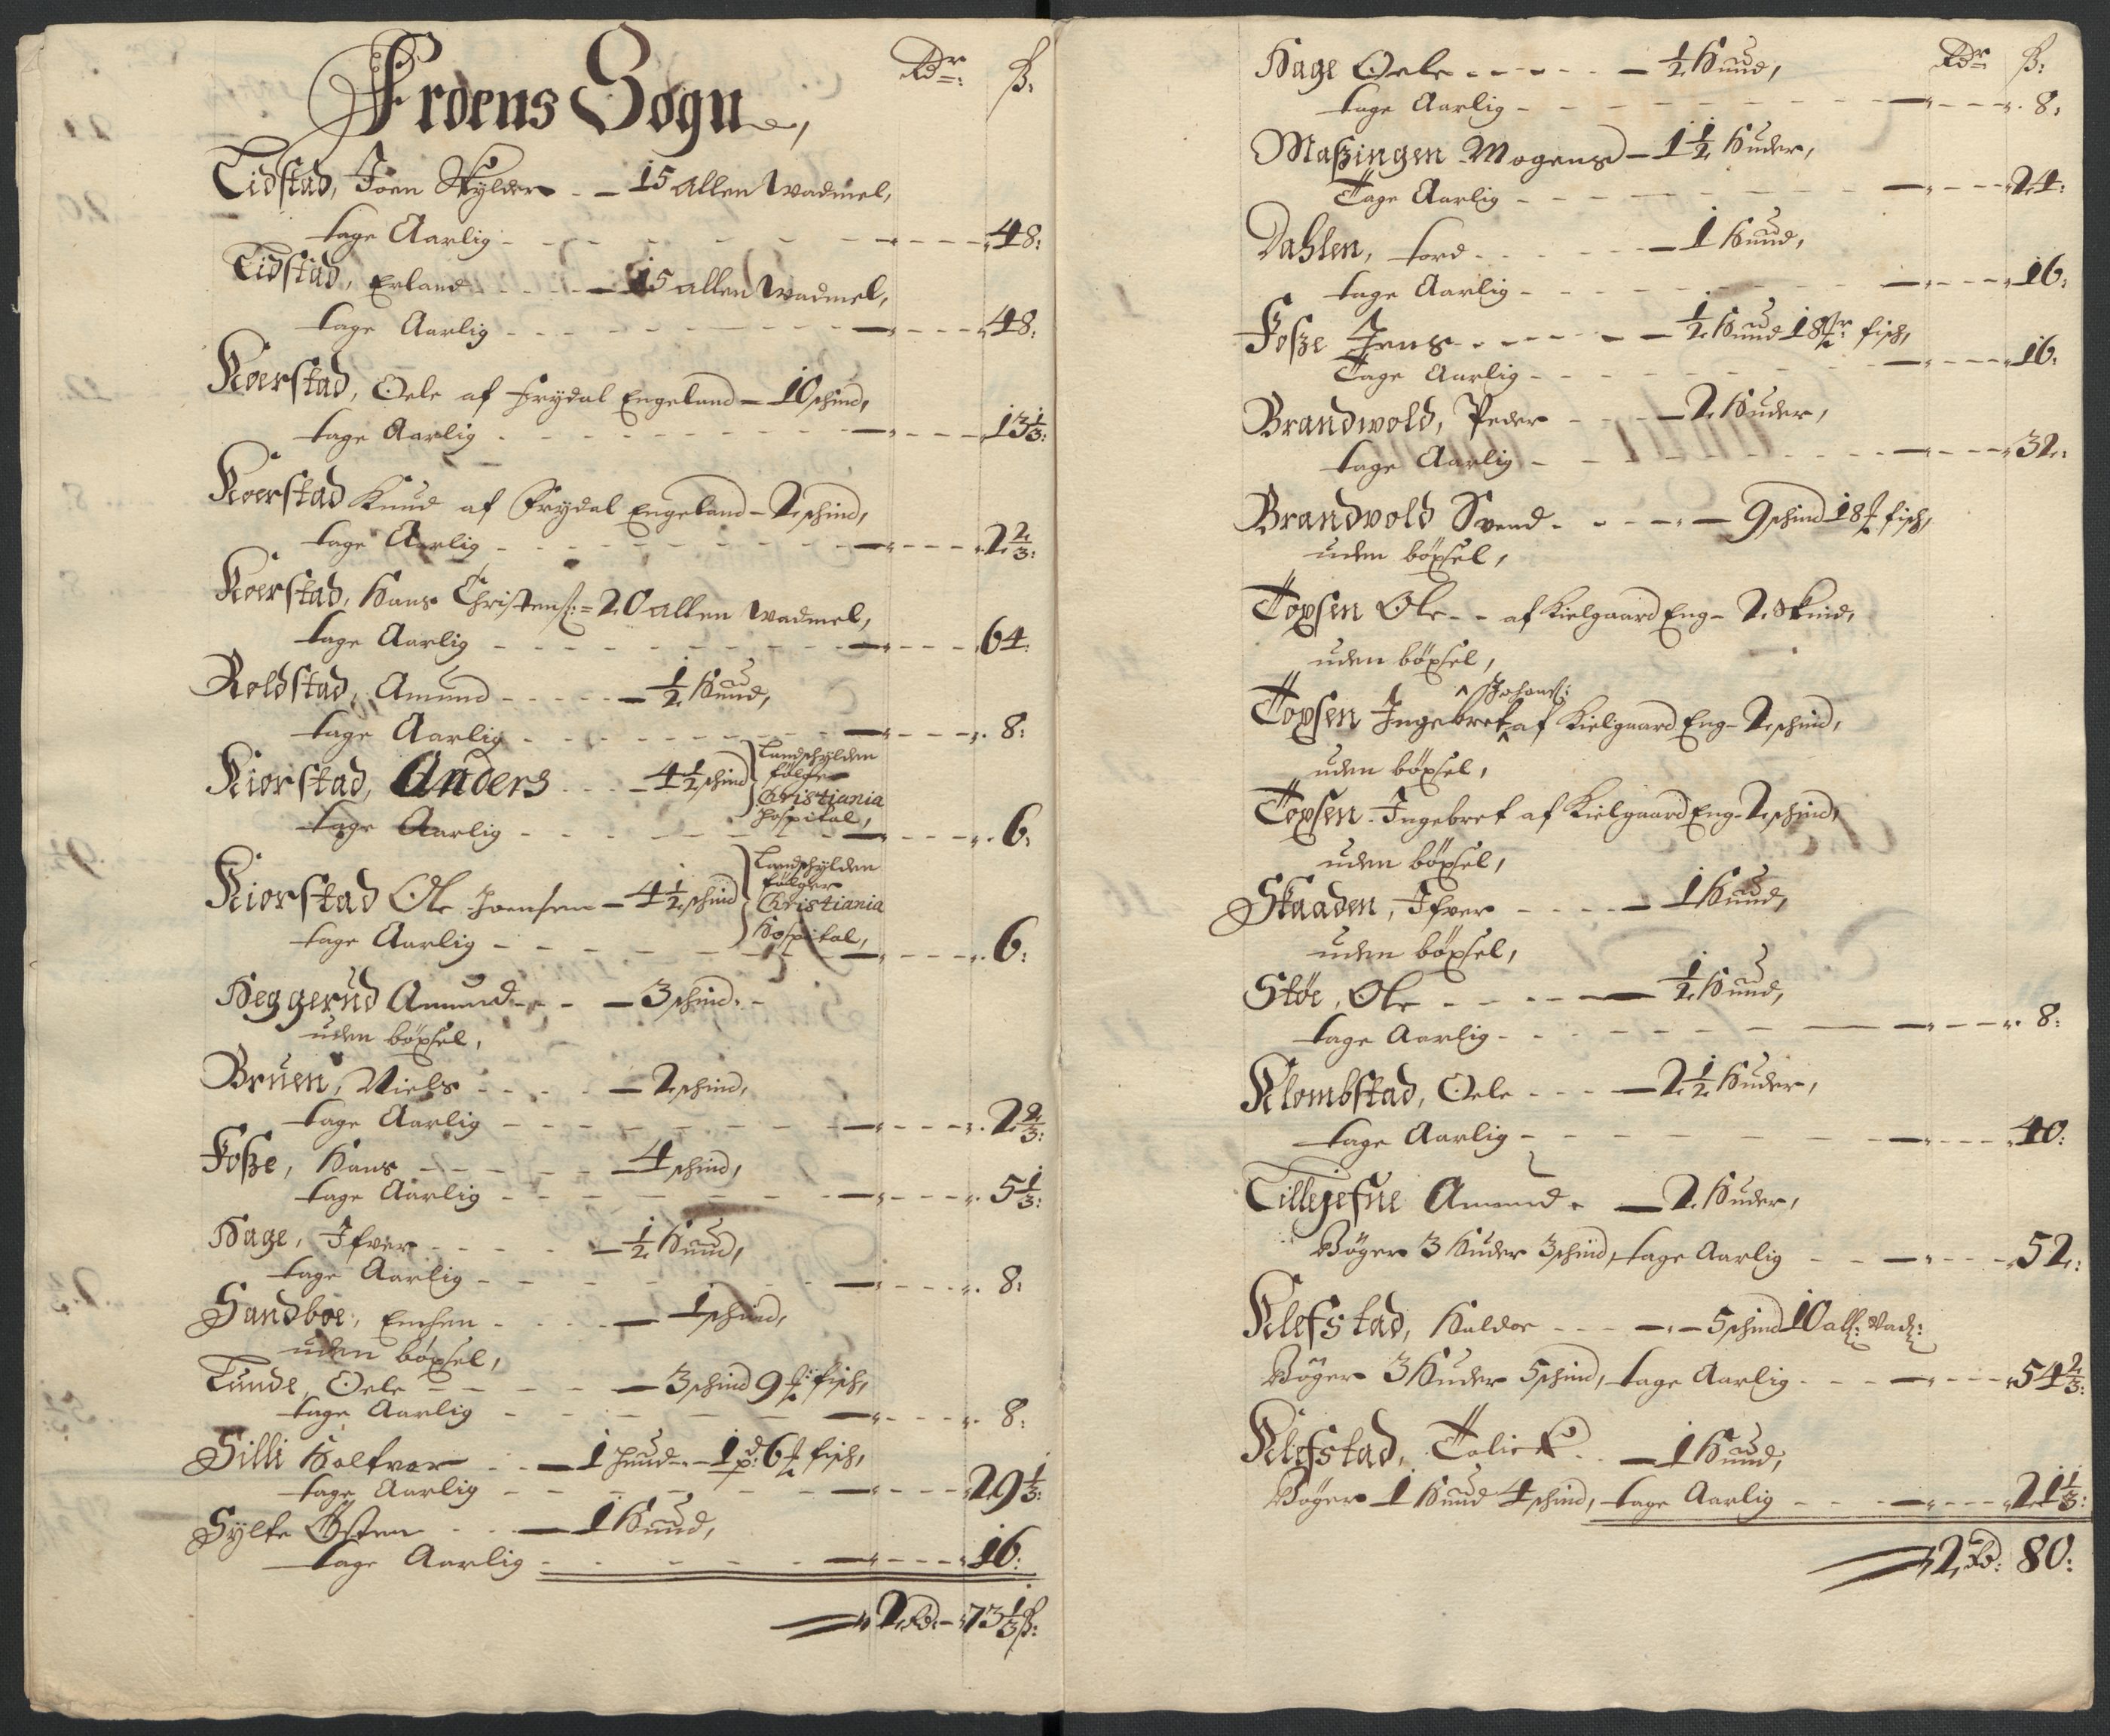 Rdr: ß:
Froens Sogn,
Tidstad, Joen Skylder - - 15 allen Wadmel,
tage Aarlig - - - 48:
Tidstad, Erland - - - 15 allen Wadmel,
tage Aarlig - - - 48:
Koerstad, Oele af Frydal Engeland - 10 schind,
tage Aarlig - - - 13 1/3:
Koerstad Knud af Frydal Engeland - 2 schind,
tage Aarlig - - - 2 2/3:
Koerstad, Hans Christens: = 20 allen Wadmel,
tage Aarlig - - - 64:
Roldstad, Amund - - - 1/2 Huud,
tage Aarlig - - - 8:
Kiorstad, Anders - - - 4 1/2 schind } Landschylden
følger
Christiania
Hospital,
tage Aarlig - - - 6:
Kiorstad Ole Joensen - 4 1/2 schind } Landschylden
følger
Christiania
Hospital,
tage Aarlig - - - 6:
Heggerud Amund - - - 3 schind: -
uden böxsel,
Bruen, Niels - - - 2 schind,
tage Aarlig - - - 2 2/3:
Foße, Hans - - - 4 schind,
tage Aarlig - - - 5 1/3:
Hage, Ifver - - - 1/2 Huud,
tage Aarlig - - - 8:
Sandboe, - - - 1 schind,
uden böxsel,
Tunde, Oele - - - 3 schind 9 ℔: fisch,
tage Aarlig - - - 8:
Silli Halfvor - - - 1 Huud - 1 pd: 6 ℔ fisch,
tage Aarlig - - - 29 1/3:
Sylte Østen - - - 1 Huud,
tage Aarlig - - - 16:
2 Rd - 73 1/3 ß:
Rdr: ß:
Hage Oele - - - 1/2 Huud,
tage Aarlig - - - 8:
Maßingen Mogens - 1 1/2 Huder,
Tage Aarlig - - - 24:
Dahlen, Tord - - - 1 Huud,
tage Aarlig - - - 16:
Foße Jens - - - 1/2 Huud 18 ℔r: fisch,
Tage Aarlig - - - 16:
Brandwold, Peder - - - 2 Huder,
tage Aarlig - - - 32:
Brandvold Svend - - - 9 schind 18 ℔ fisch,
uden böxsel,
Toxsen Ole - - af Kielgaard Eng - 2 Skind,
uden böxsel,
Johans:
Toxsen Ingebret af Kielgaard Eng - 2 schind,
uden böxsel,
Toxsen Ingebret af Kielgaard Eng - 2 schind,
uden böxsel,
Skaaden, Ifver - - - 1 Huud,
uden böxsel,
Støe, Ole - - - 1/2 Huud,
tage Aarlig - - - 8:
Klombstad, Oele - - - 2 1/2 Huder,
tage Aarlig - - - 40:
Tillejefne Amund - - 2 Huder,
Böger 3 Huder 3 schind, tage Aarlig - - - 52:
Klefstad, Haldor - - - 5 schind 10 all: Vad:
Böger 3 Huder 5 schind, tage Aarlig - - - 54 2/3:
Klefstad, - - 1 Huud,
Böger 1 Huud 4 schind, tage Aarlig - - - 21 1/3:
2 Rd: 80: